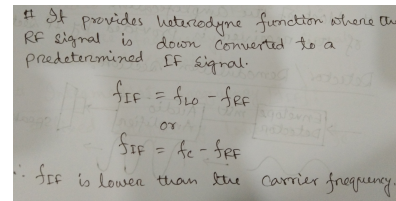 # It provides heterodyne function where the
RF signal is down converted to a
predetermined IF signal.
fIF = fLO - fRF
or
fIF = fc - fRF
∴ fIF is lower than the carrier frequency.